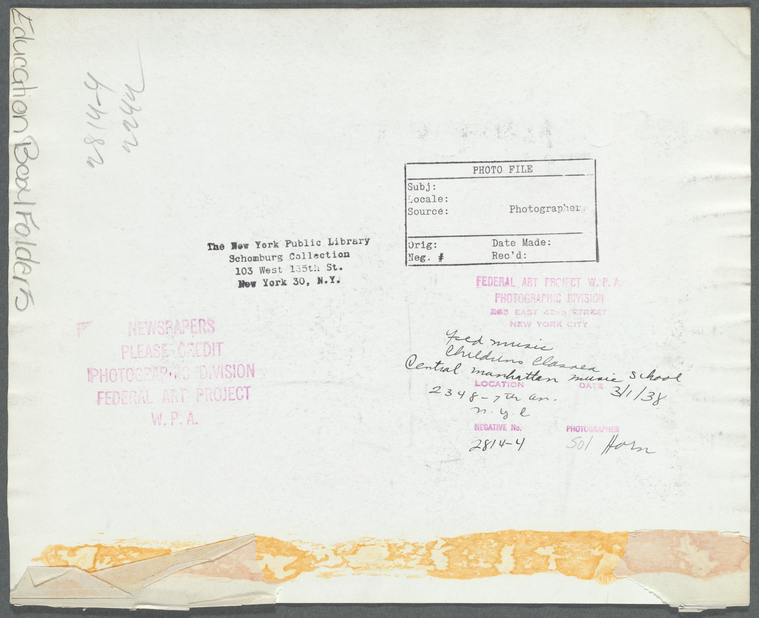 Education Beal Folders
2814-4
PHOTO FILE
Subj:
Locale:
Source: Photographer
Orig: Date Made:
Neg. # Rec'd:
The New York Public Library
Schomburg Collection
103 West 135th St.
New York 30, N.Y.
FEDERAL ART PROJECT W. P. A.
PHOTOGRAPHIC DIVISION
EAST 42ND STREET
NEW YORK CITY
NEWSPAPERS
PLEASE CREDIT
PHOTOGRAPHIC DIVISION
FEDERAL ART PROJECT
W. P. A.
Fed music
Childrens Classes
Central manhattan music School
LOCATION DATE 3/1/38
2348-7th av.
n.y.c
NEGATIVE No. PHOTOGRAPHER
2814-4 Sol Horn